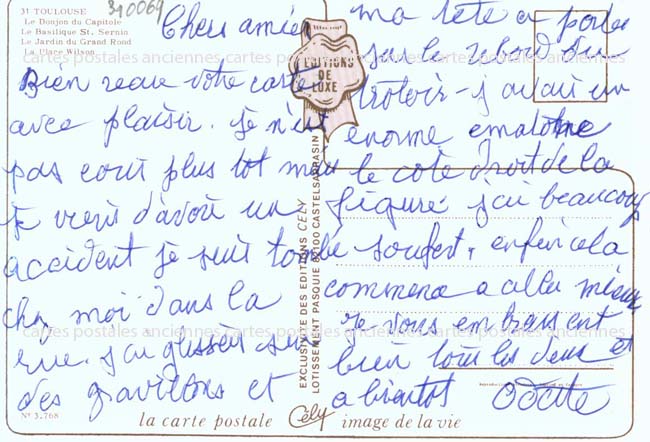 310069
31 TOULOUSE
Le Donjon du Capitole
Le Basilique St. Sernin
Le Jardin du Grand Rond
La Place Wilson
Chers amies
Bien reçue votre carte
avec plaisir. je n'est
pas écrit plus tot mais
je viens d'avoir un
accident je suis tombé
chez moi dans la
rue. j'ai glisser sur
des gravillons et
ma tete a porter
sur le rebord du
trotoir - j'avais un
enorme ematome
le coté droit de la
figure j'ai beaucoup
soufert. enfin cela
commence a aller mieux
je vous embrassent
bien tous les deux et
a bientot Odette
ÉDITIONS
DE
LUXE
EXCLUSIVITÉ DES EDITIONS CELY
LOTISSEMENT PASQUIE 82100 CASTELSARRASIN
cartes postales anciennes cartes postales anciennes
cartes postales anciennes cartes postales anciennes
N° 3.768
la carte postale Cély image de la vie